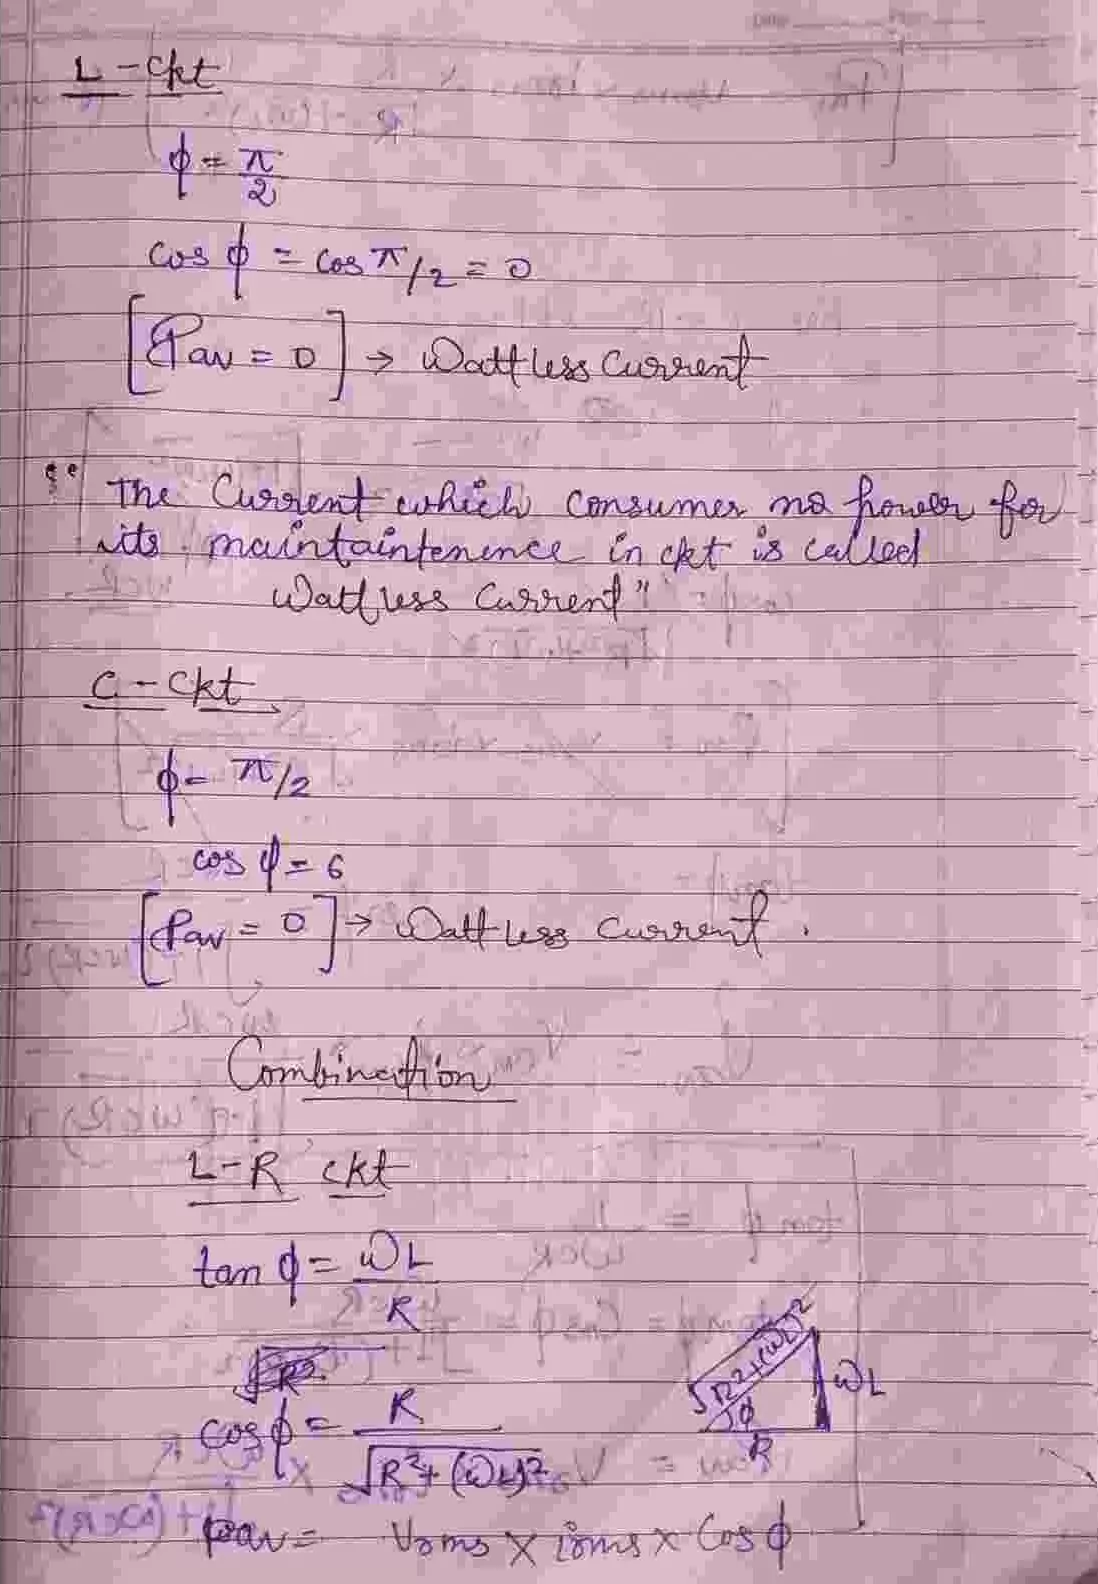 L - Ckt
ϕ = π/2
cos ϕ = cos π/2 = 0
[Pav = 0] → Wattless Current
"The Current which consumer no power for
its maintaintenence in ckt is called
Wattless Current"
C - Ckt
ϕ - π/2
cos ϕ = 0
[Pav = 0] → Wattless Current.
Combination
L-R ckt
tan ϕ = ωL/R
cos ϕ = R/√R²+(ωL)²
√R²+(ωL)² ϕ ωL R
Pav = Vrms × irms × Cos ϕ